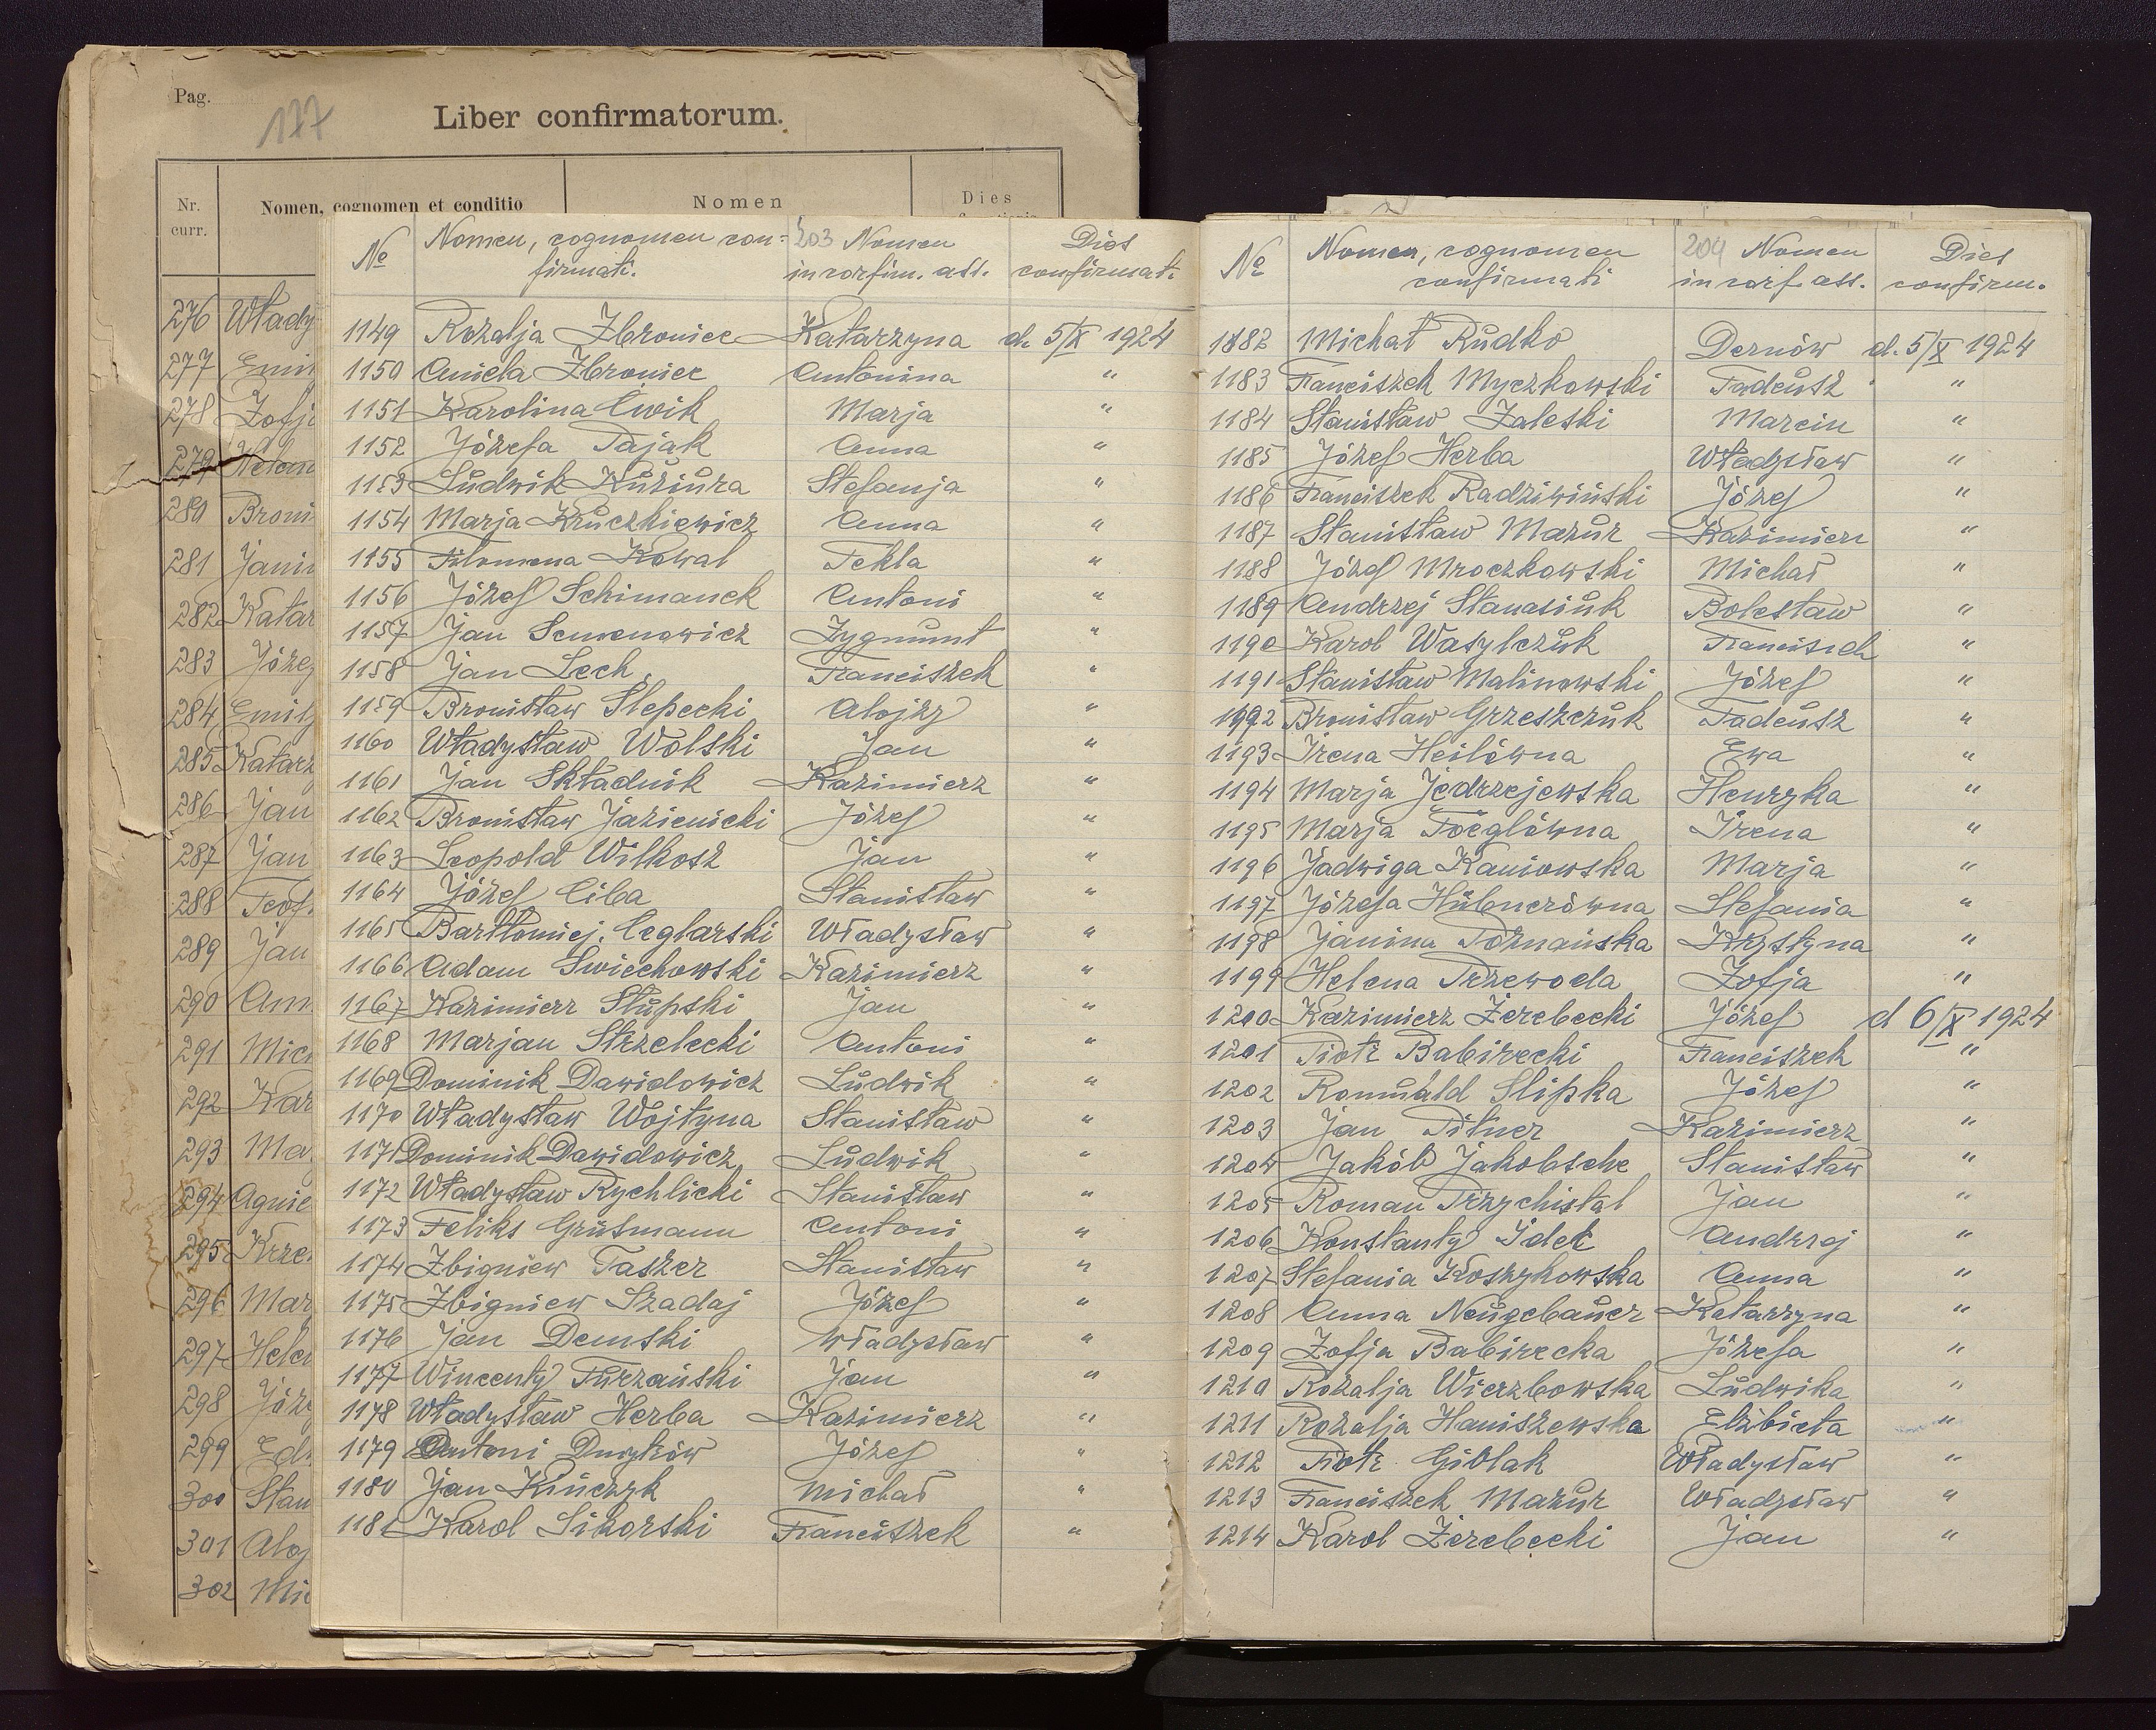 Pag.
177
Liber confirmatorum.
Nr. curr.
Nomen, cognomen et conditio
Nomen
Dies
276 Włady
277 Emi
278 Zofj
279 Helen
280 Broni
281 Jani
282 Katar
283 Józe
284 Emil
285 Katarz
286 Jan
287 Jan
288 Teof
289 Jan
290 Ann
291 Mic
292 Kar
293 Ma
294 Agnie
295 Krze
296 Mar
297 Hele
298 Józ
299 Ed
300 Stan
301 Aloj
302 Mi
203
№ Nomen, cognomen con-firmati. Nomen in confirm. ass. Dies confirmati
1149 Rozalja Zbroniec Katarzyna d. 5/X 1924
1150 Aniela Zbroniec Antonina "
1151 Karolina Ćwik Marja "
1152 Józefa Pająk Anna "
1153 Ludwik Kuziura Stefanja "
1154 Marja Kruczkiewicz Anna "
1155 Filomena Kowal Tekla "
1156 Józef Schimanek Antoni "
1157 Jan Semenowicz Zygmunt "
1158 Jan Lech Franciszek "
1159 Bronisław Slepecki Alojzy "
1160 Władysław Wolski Jan "
1161 Jan Składnik Kazimierz "
1162 Bronisław Jazienicki Józef "
1163 Leopold Wilkosz Jan "
1164 Józef Ciba Stanisław "
1165 Bartłomiej Ceglarski Władysław "
1166 Adam Swiechowski Kazimierz "
1167 Kazimierz Słupski Jan "
1168 Marjan Strzelecki Antoni "
1169 Dominik Dawidowicz Ludwik "
1170 Władysław Wojtyna Stanisław "
1171 Dominik Dawidowicz Ludwik "
1172 Władysław Rychlicki Stanisław "
1173 Feliks Grüsmann Antoni "
1174 Zbigniew Taszer Stanisław "
1175 Zbigniew Szadaj Józef "
1176 Jan Demski Władysław "
1177 Wincenty Turzański Jan "
1178 Władysław Herba Kazimierz "
1179 Antoni Dmytrów Józef "
1180 Jan Kinczyk Michał "
1181 Karol Sikorski Franciszek "
204
№ Nomen, cognomen confirmati Nomen in conf. ass. Dies confirm.
1182 Michał Rudko Dernów d. 5/X 1924
1183 Franciszek Myczkowski Tadeusz "
1184 Stanisław Zaleski Marcin "
1185 Józef Herba Władysław "
1186 Franciszek Radziwiński Józef "
1187 Stanisław Mazur Kazimierz "
1188 Józef Mroczkowski Michał "
1189 Andrzej Stanasiuk Bolesław "
1190 Karol Wasylczuk Francisek "
1191 Stanisław Malinowski Józef "
1192 Bronisław Grzeszczuk Tadeusz "
1193 Irena Heilówna Ewa "
1194 Marja Jędrzejewska Henryka "
1195 Marja Foeglówna Irena "
1196 Jadwiga Kaniowska Marja "
1197 Józefa Hübnerówna Stefania "
1198 Janina Poznańska Krystyna "
1199 Helena Przewoda Zofja "
1200 Kazimierz Żerebecki Józef d 6/X 1924
1201 Piotr Babirecki Franciszek "
1202 Romuald Slipka Józef "
1203 Jan Pitner Kazimierz "
1204 Jakób Jakobsche Stanisław "
1205 Roman Przychistal Jan "
1206 Konstanty Idec Andrzej "
1207 Stefania Koszykowska Anna "
1208 Anna Neugebauer Katarzyna "
1209 Zofja Babirecka Józefa "
1210 Rozalja Wierzbowska Ludwika "
1211 Rozalja Haniszewska Elżbieta "
1212 Piotr Giblak Władysław "
1213 Franciszek Mazur Władysław "
1214 Karol Żerebecki Jan "